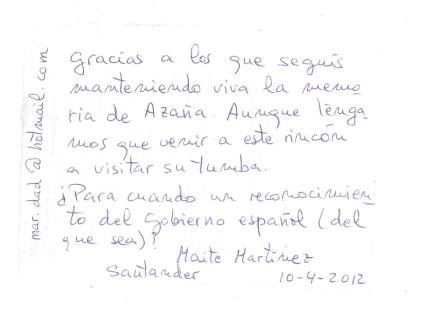 Gracias a los que seguís
manteniendo viva la memo
ria de Azaña. Aunque tenga
mos que venir a este rincón
a visitar su tumba.
¿Para cuando un reconocimien
to del Gobierno español (del
que sea)?
Maite Martínez
Santander 10-4-2012
mar.dad@hotmail.com